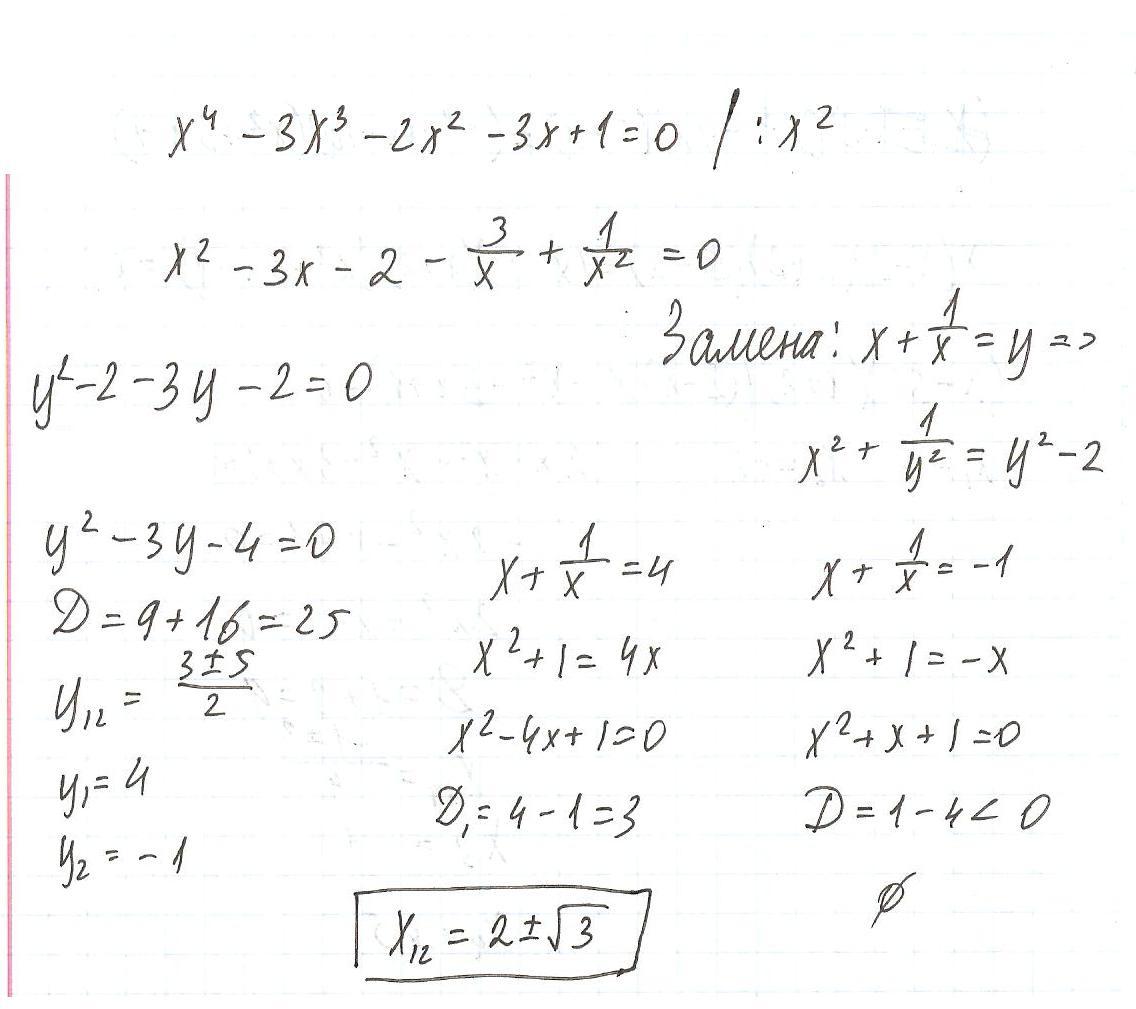 x⁴ - 3x³ - 2x² - 3x + 1 = 0 / : x²
x² - 3x - 2 - 3/x + 1/x² = 0
Замена: x + 1/x = y =>
x² + 1/y² = y² - 2
y² - 2 - 3y - 2 = 0
y² - 3y - 4 = 0
D = 9 + 16 = 25
y₁₂ = (3 ± 5)/2
y₁ = 4
y₂ = - 1
x + 1/x = 4
x² + 1 = 4x
x² - 4x + 1 = 0
D₁ = 4 - 1 = 3
x₁₂ = 2 ± √3
x + 1/x = - 1
x² + 1 = - x
x² + x + 1 = 0
D = 1 - 4 < 0
∅